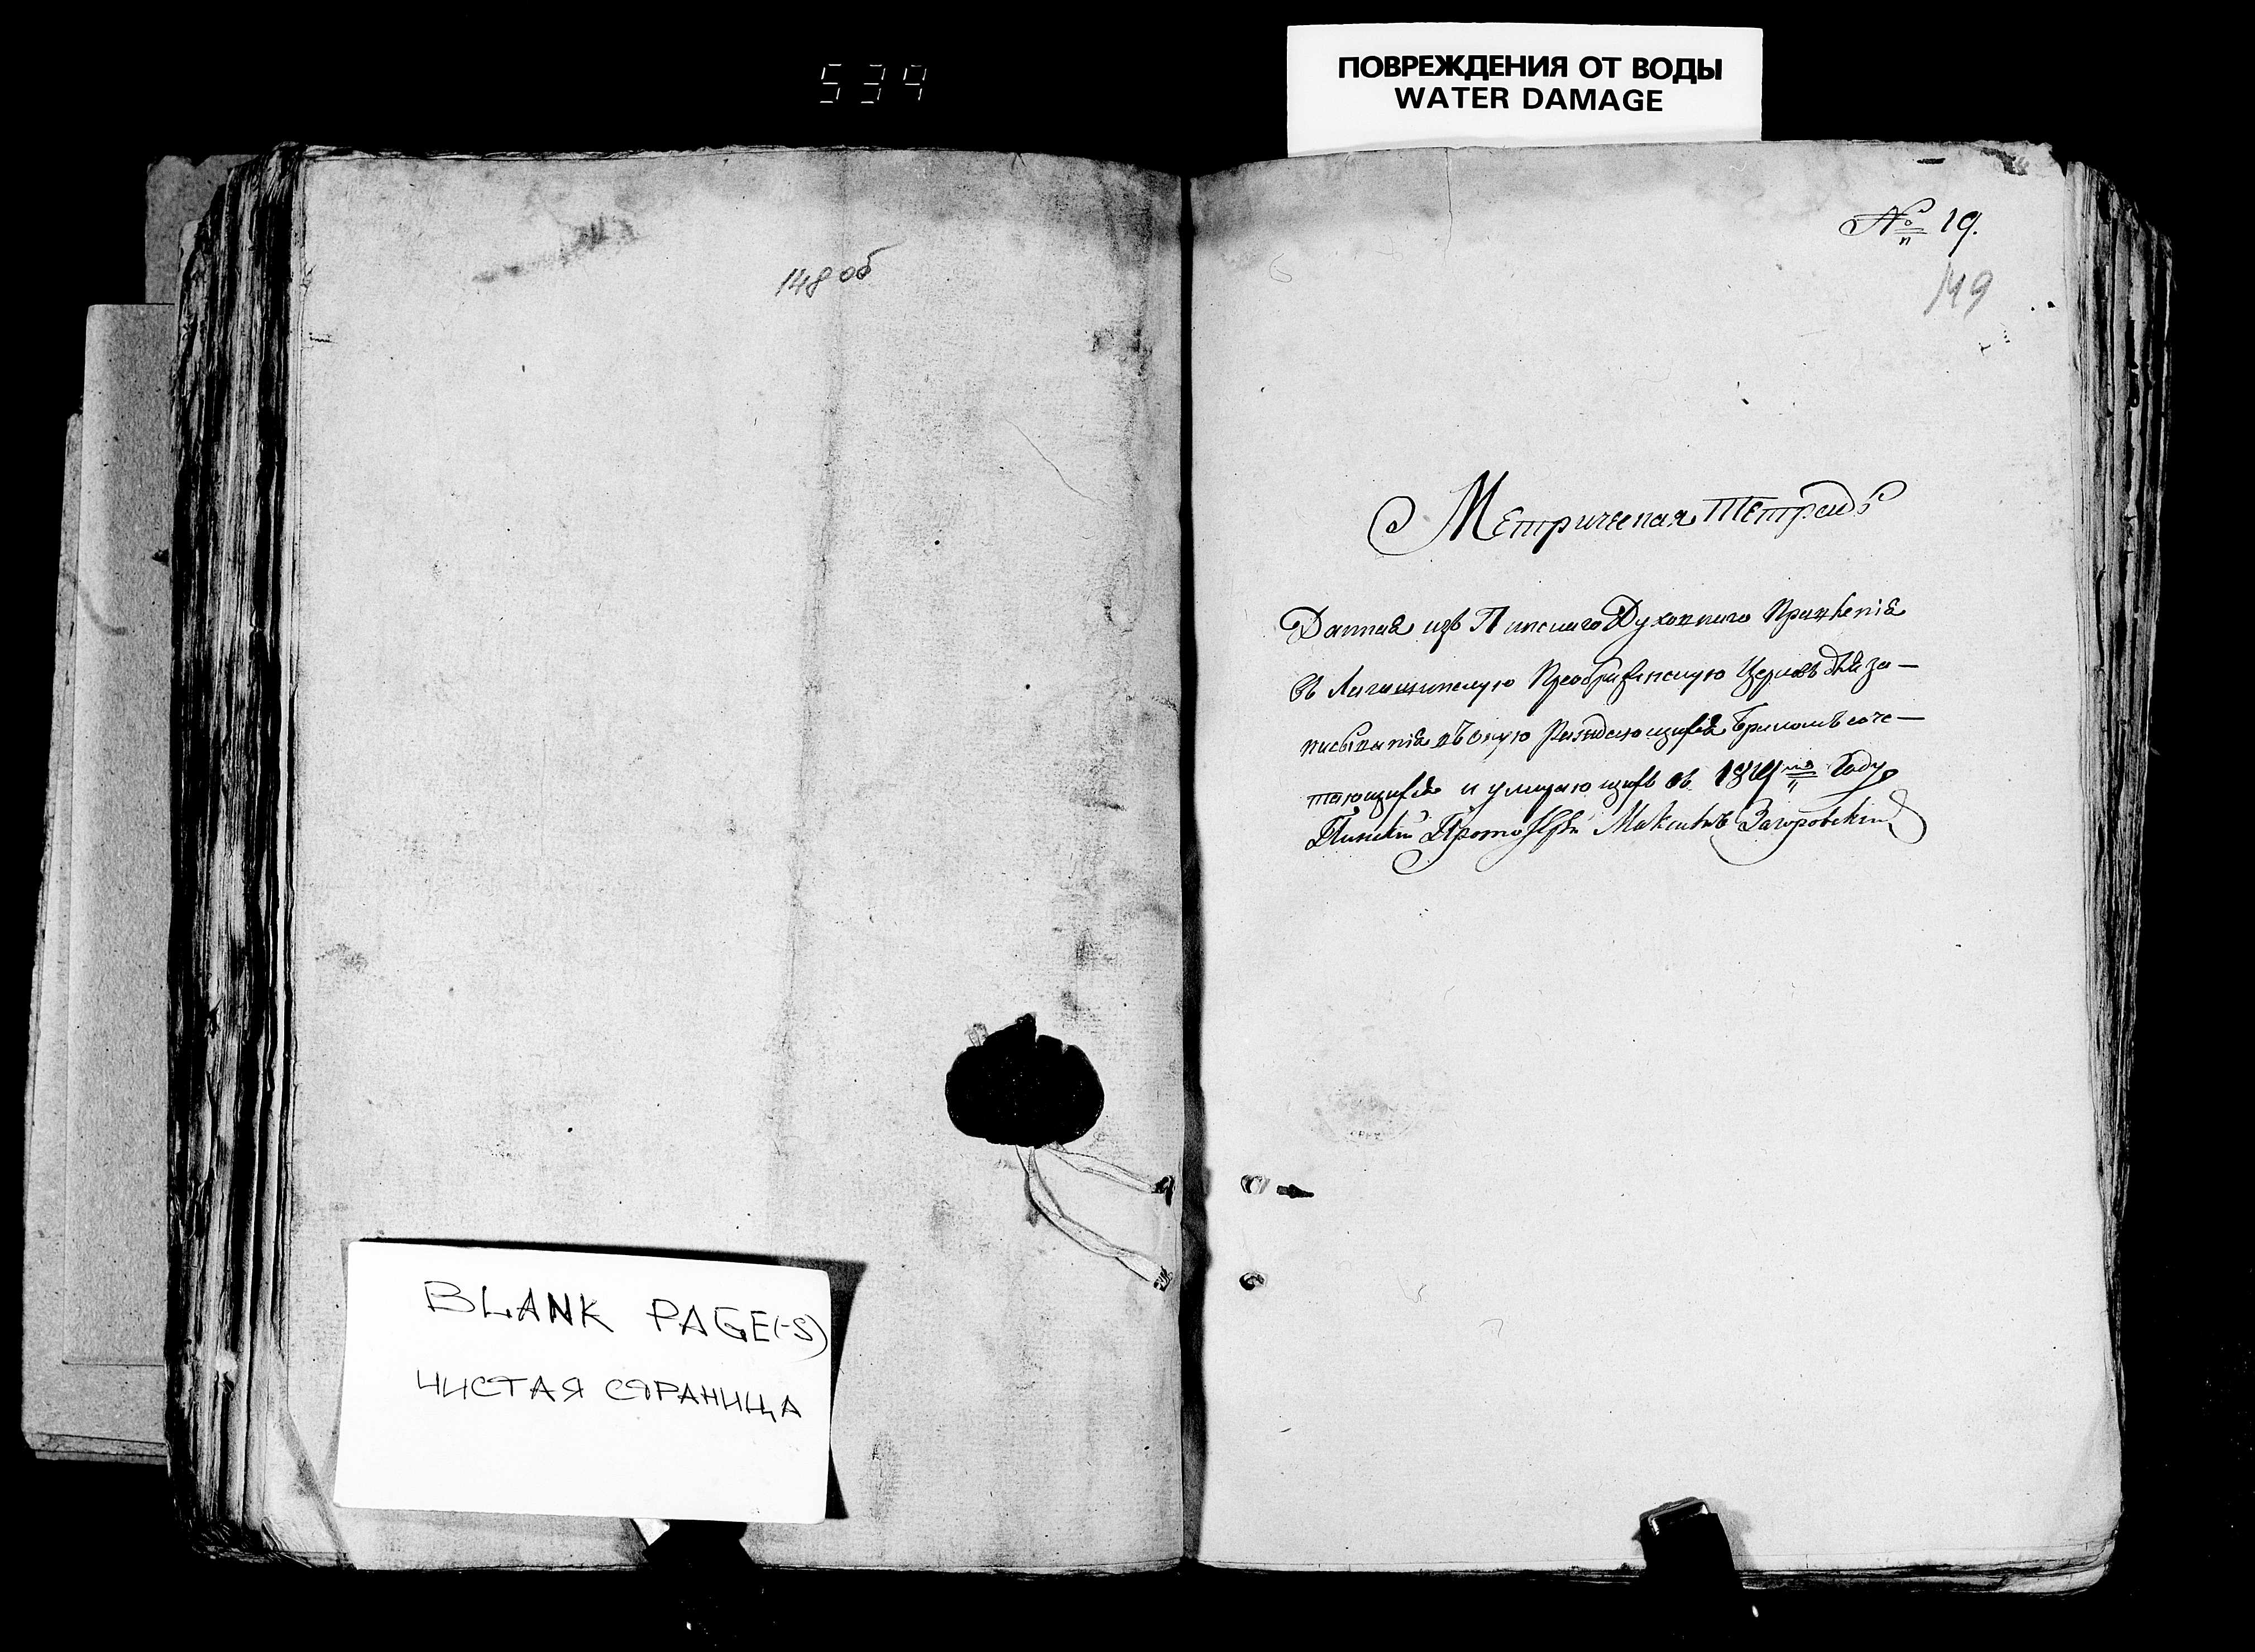 539
ПОВРЕЖДЕНИЯ ОТ ВОДЫ
WATER DAMAGE
148 об
№ 19.
149
Метрическая Тетрадь
Данная изъ Пинскаго Духовнаго Правленія
въ Логишинскую Преображенскую Церковь для за–
писыванія въ оную Раждающихся Бракомъ соче–
тающихся и умирающихъ въ Году
Пинскій Протоіерей Максимъ Загоровскій
BLANK PAGE(-S)
ЧИСТАЯ СТРАНИЦА